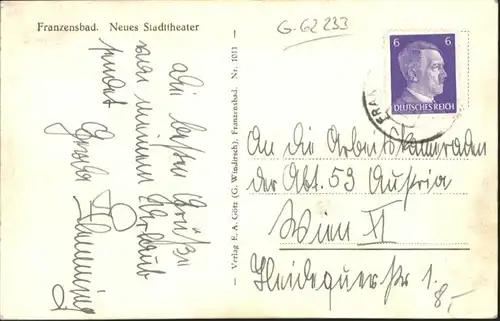 Franzensbad. Neues Stadttheater
G-62 233
6 6
DEUTSCHES REICH
FRAN
Die besten Grüße
von meinem Urlaub
sendet
— Verlag E. A. Götz (G. Windirsch), Franzensbad. Nr. 1011 —
An die Arbeitskameraden
der Abt. 53 Austria
Wien XI
str 1.
8,-